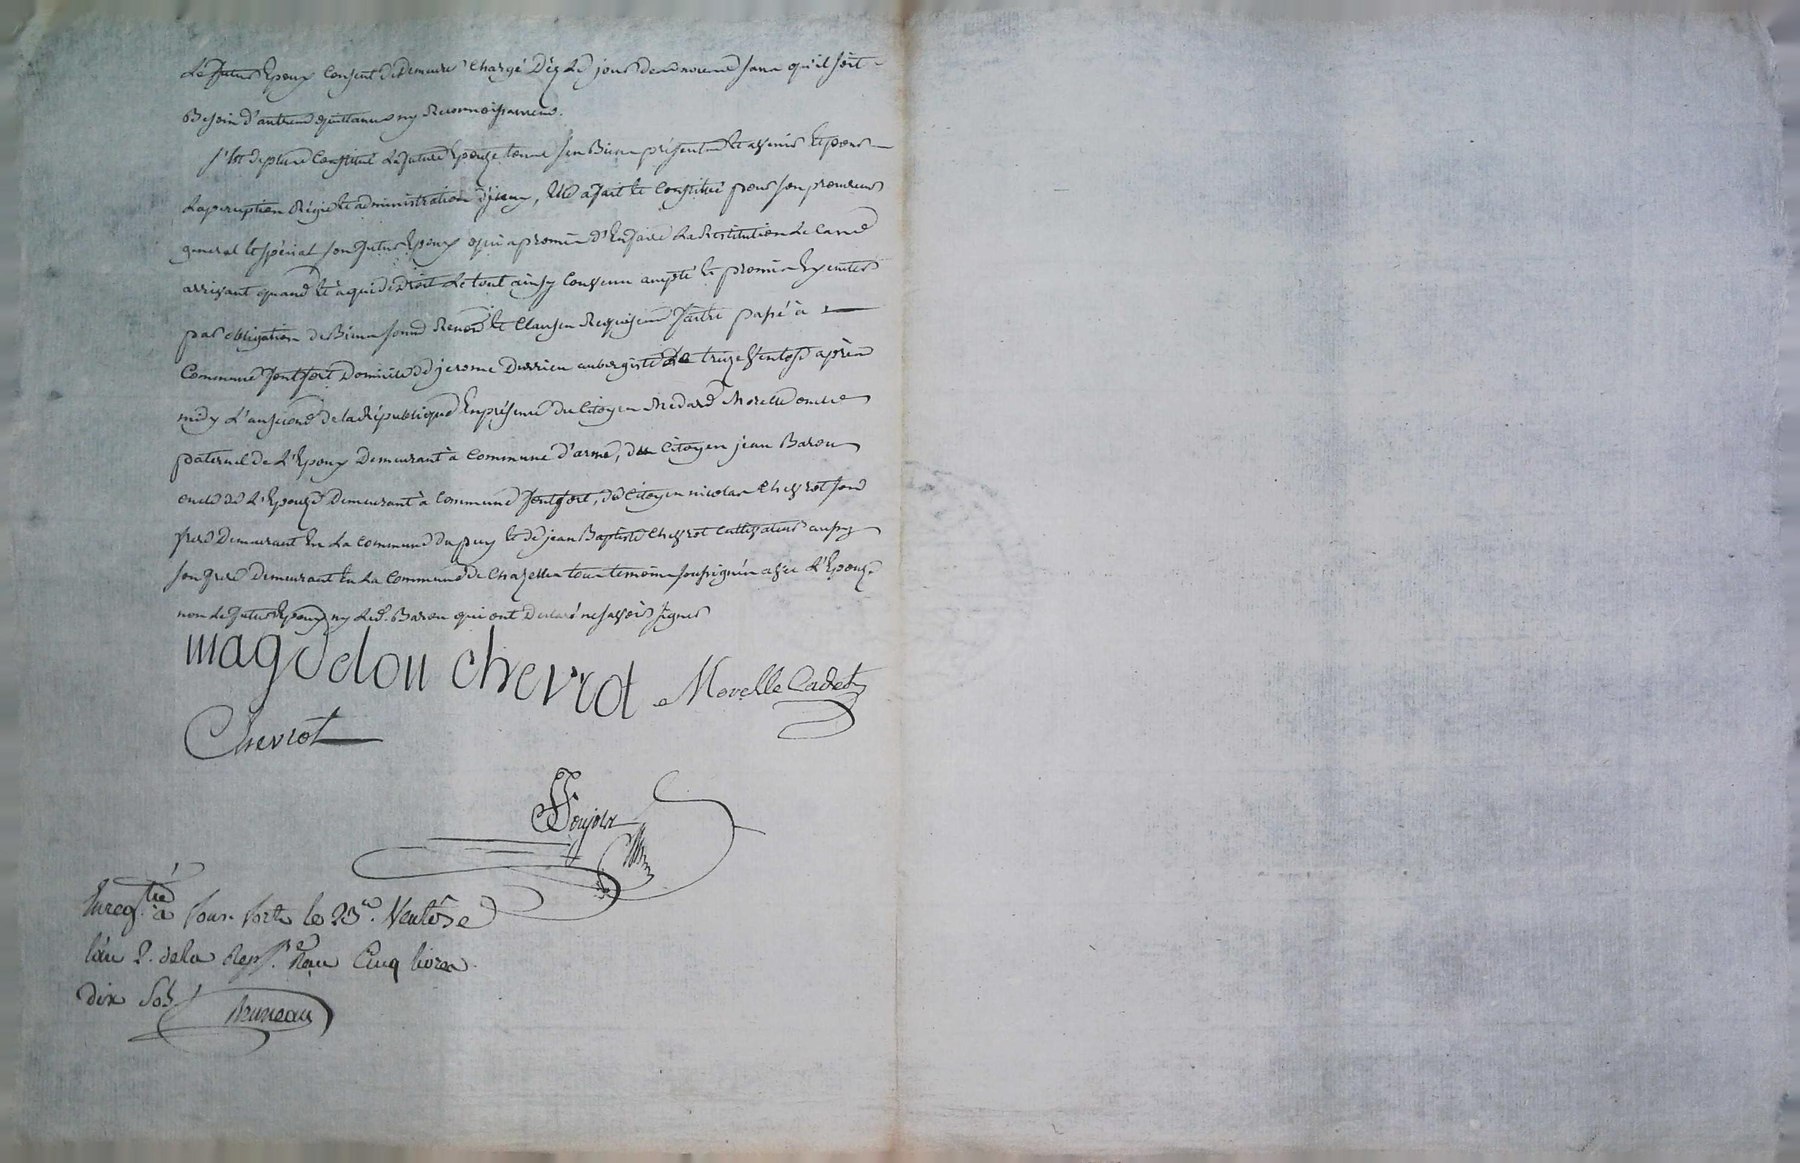 Le futur Epoux Consent de Demeurer Chargé Dèz Le jour des noces sans qu'il soit
Besoin d'autres quittances ny Reconnoissances.
s'est deplus Constitué La future Epouze tous ses Biens présents et avenir et pour
La perception Régie et administration d'jceux, Elle a fait et Constitué pour son procureur
general et spécial son futur Epoux qui a promis d'En faire La Restitution Le Cas
arrivant quand et à qui de Droit Le tout ainsy Convenu accepté et promis Exécuter
par obligation de Biens soumis Renon et Clauses Requises fait et passé à
Commune fontfort Domicile de jerome Durrieu aubergiste Le treize Ventose après
midy L'an second de la République En présence du Citoyen Medard Morelle oncle
paternel de L'Epoux Demeurant à Commune d'armes, du Citoyen jean Barou
oncle de L'Epouze Demeurant à Commune fontfort, de Citoyen nicolas Chevrot son
frere Demeurant En La Commune du puy et de jean Baptiste Chevrot Cultivateur aussy
son frere Demeurant En La Commune de Chazelles tous temoins soussignés avec L'Epouze
non Le futur Epoux ny Led. Barou qui ont Déclaré ne savoir signer
magdelon chevrot Morelle Cadet
Chevrot
Enreg.tré à fons fortes le 23 Ventôse
l'an 2. dela Rep. Reçu Cinq livres
dix Sols Bruneau